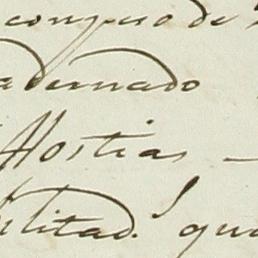 compuso de
adernado
Hostias —
ilitad. qua